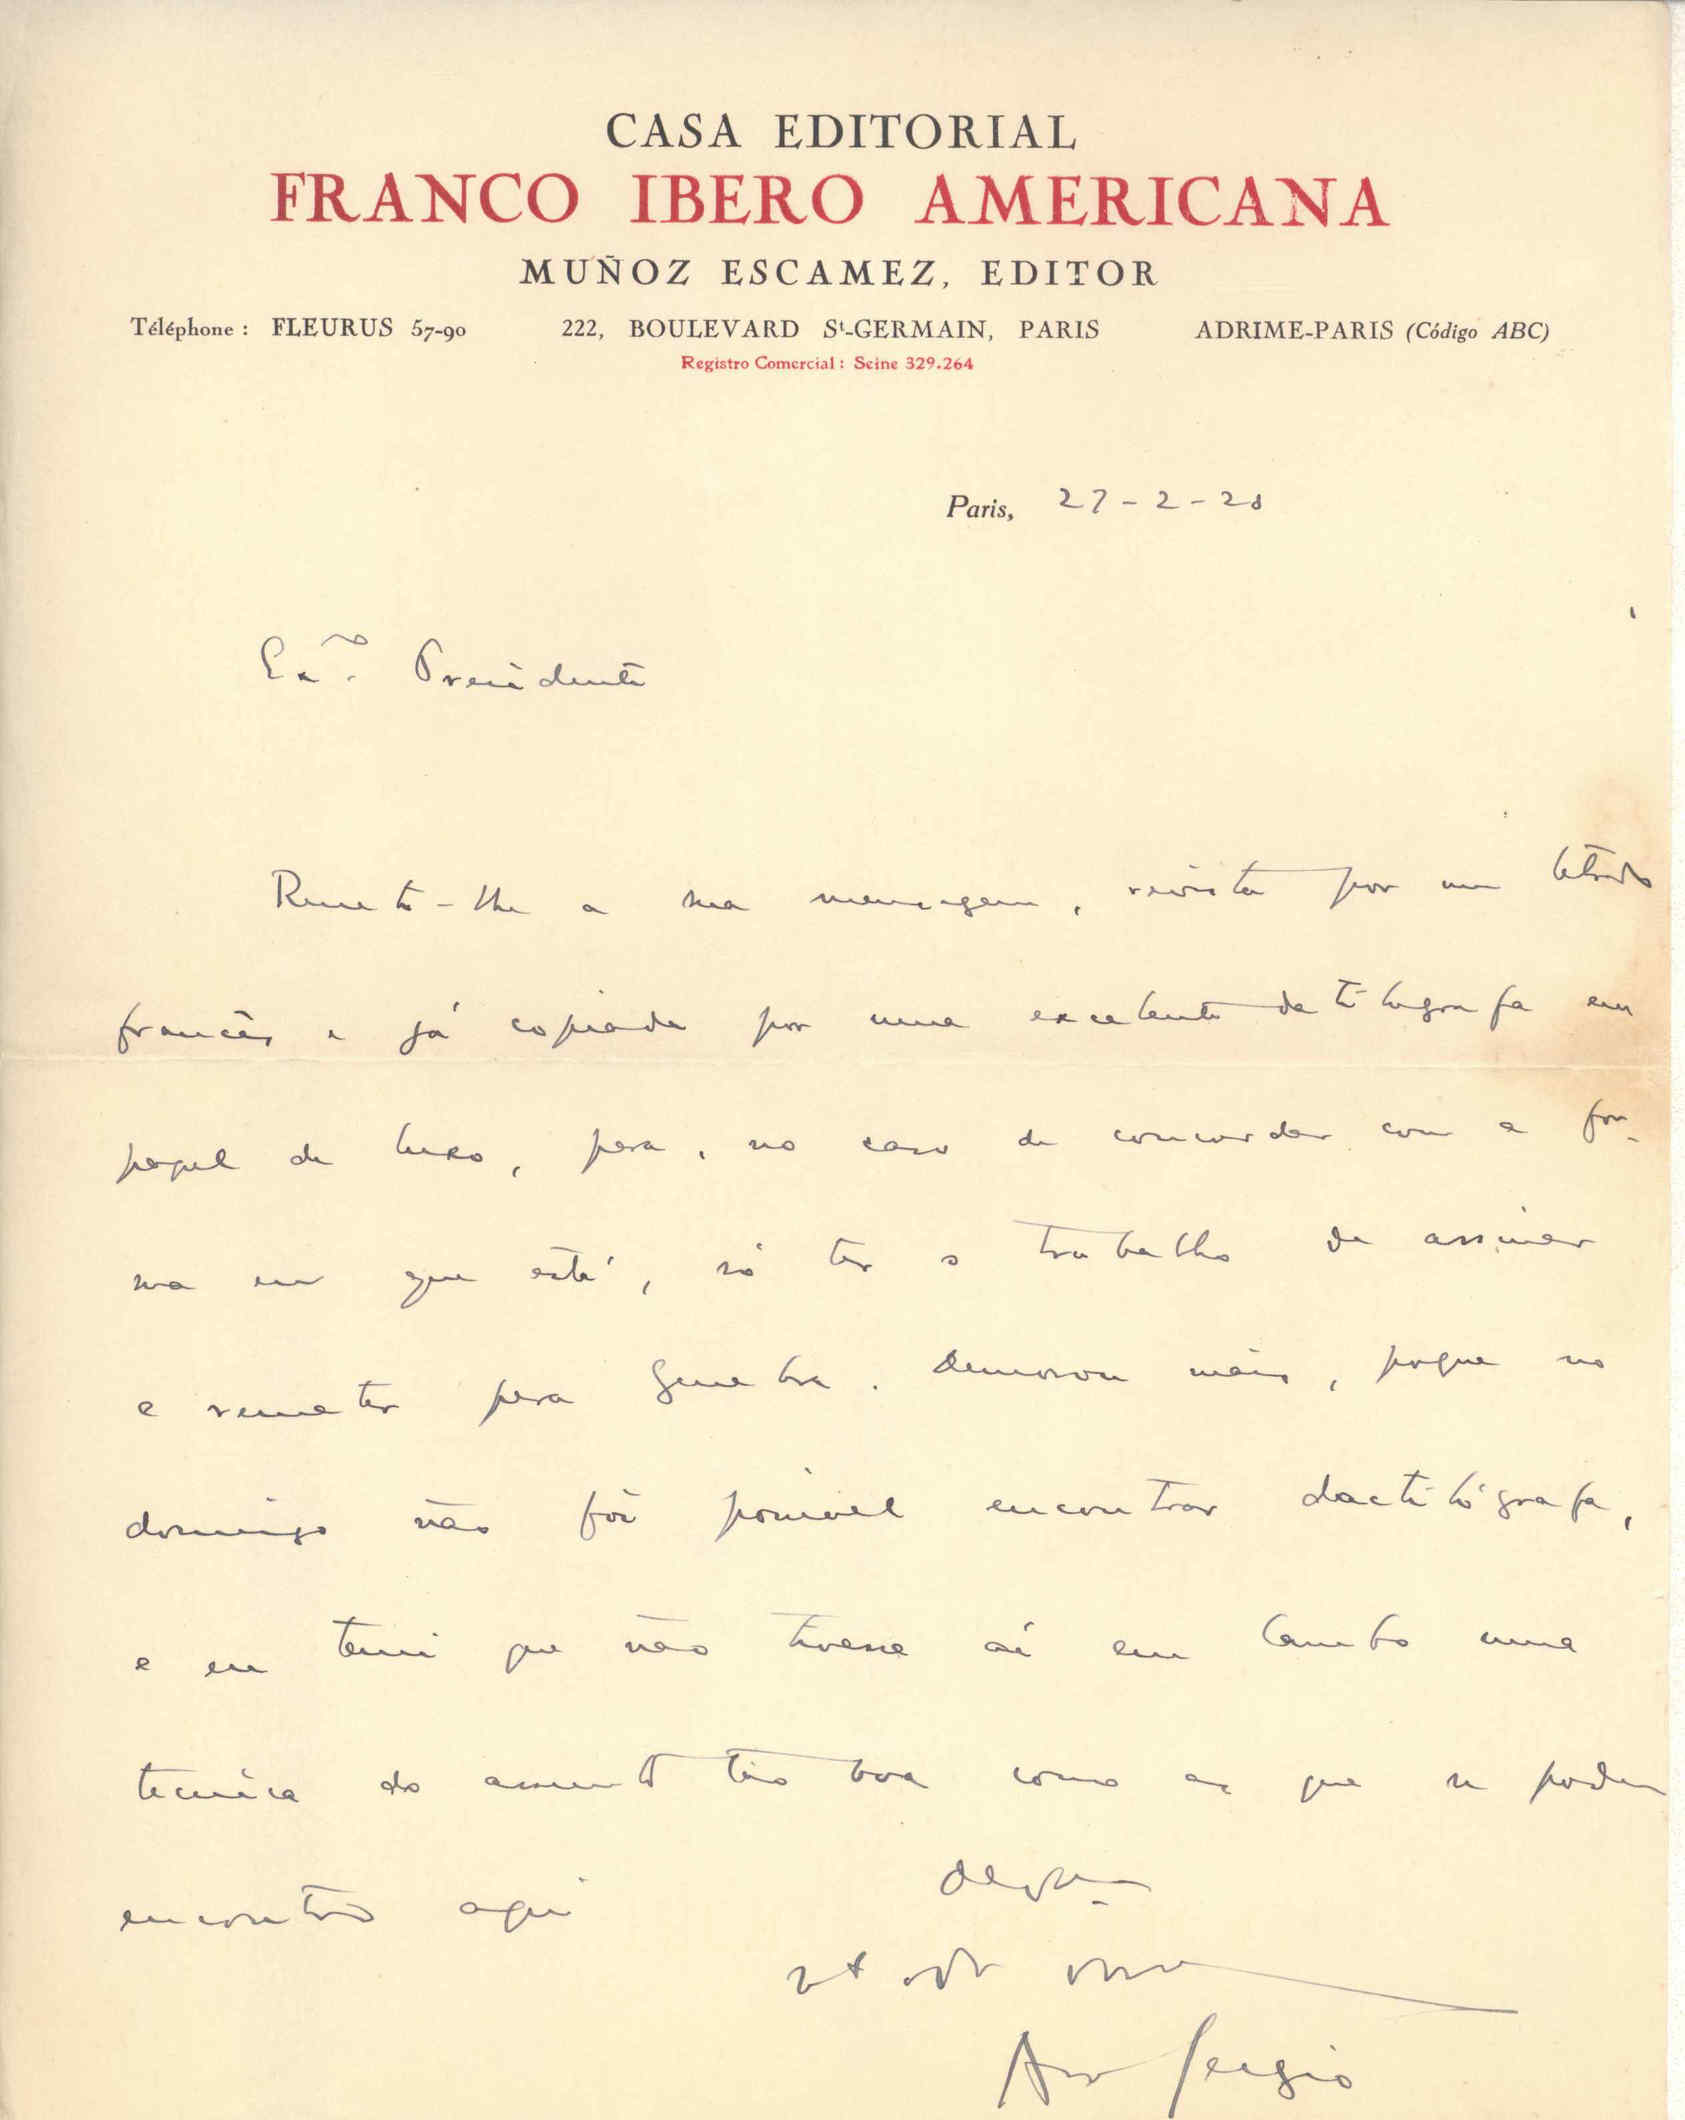 CASA EDITORIAL
FRANCO IBERO AMERICANA
MUÑOZ ESCAMEZ, EDITOR
Téléphone : FLEURUS 57-90 222, BOULEVARD St-GERMAIN, PARIS ADRIME-PARIS (Código ABC)
Registro Comercial : Seine 329.264
Paris, 27-2-28
Exmo. Presidente
Remeto-lhe a sua mensagem, revista por um letrado
francês e já copiada por uma excelente datilografa em
papel de luxo, para, no caso de concordar com a for-
ma em que está, só ter o trabalho de assinar
e remeter para Genebra. Demorou mais, porque no
domingo não foi possível encontrar dactilógrafa,
e eu temi que não tivesse aí em Cambo uma
tecnica do assunto tão boa como as que se podem
encontrar aqui
Ant Sergio